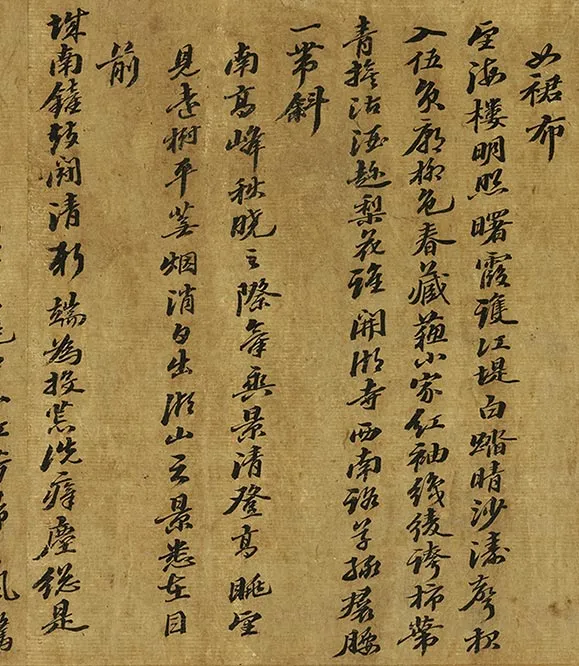 如裙布
望海樓明照曙霞護江堤白踏晴沙濤聲夜
入伍員廟柳色春藏蘓小家紅袖織綾誇柿蒂
青旗沽酒趁梨花誰開湖寺西南路草綠裙腰
一帶斜
南高峰秋曉之際每乘景清登高眺望
見遠樹平蕪烟消日出湖山之景悉在目
前
城南鐘鼓鬭清新端為投荒洗瘴塵總是